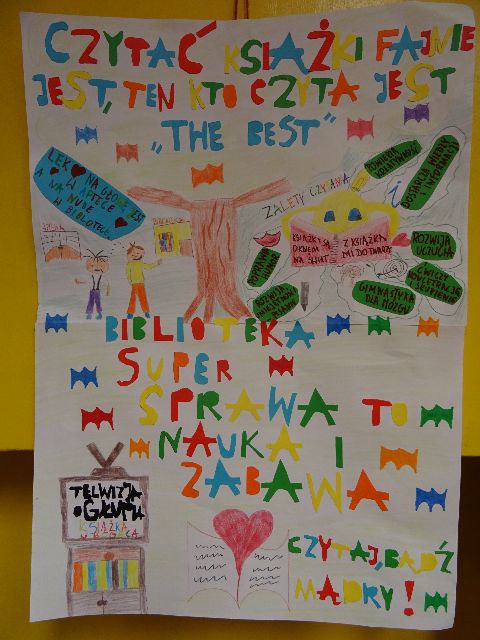 CZYTAĆ KSIĄŻKI FAJNIE
JEST, TEN KTO CZYTA JEST
„THE BEST”
LEK NA GŁOWĘ JEST
W APTECE
A NA NUDĘ
W BIBLIOTECE
ZALETY CZYTANIA
POWIĘKSZA
KREATYWNOŚĆ
DOSTARCZA WIEDZY
I INFORMACJI
KSIĄŻKI SĄ
OKNEM
NA ŚWIAT
Z KSIĄŻKA
MI DO TWARZY
ROZWIJA
UCZUCIA
POPRAWIA
ROZWIJA
ĆWICZY
KONCETRACJĘ
I SKUPIENIE
GIMNASTYKA
DLA MÓZGU
BIBLIOTEKA
SUPER
SPRAWA TO
NAUKA I
ZABAWA
TELWIZJA
OGŁUPIA
KSIĄŻKA
CZYTAJ, BĄDŹ
MĄDRY!